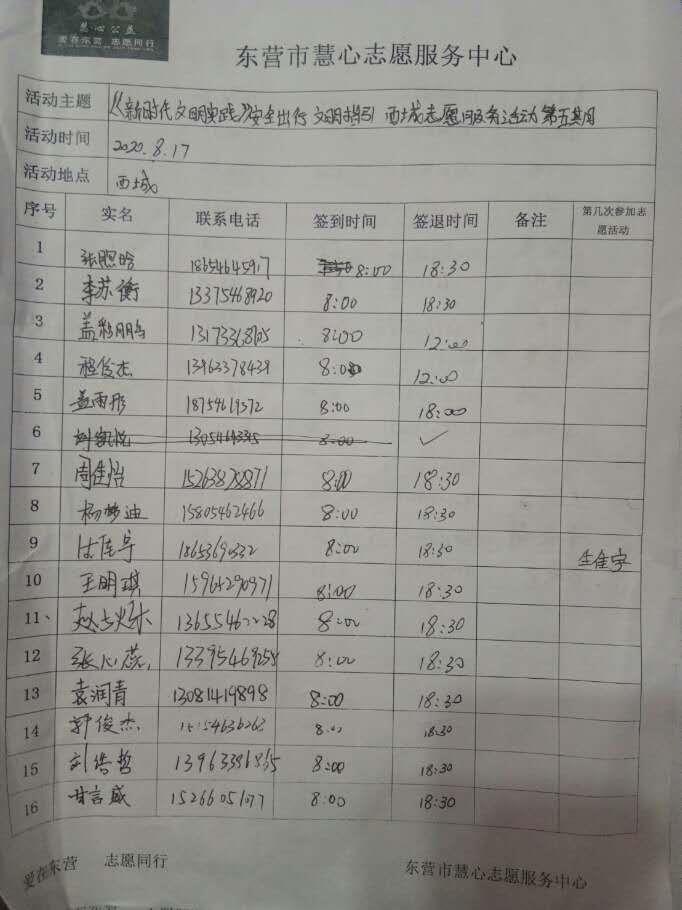 慧心公益
爱在东营 志愿同行
东营市慧心志愿服务中心
活动主题 《新时代文明实践》安全出行 文明指引 西城志愿服务活动 第五期
活动时间 2020.8.17
活动地点 西城
序号 实名 联系电话 签到时间 签退时间 备注 第几次参加志愿活动
1 张照晗 18654645917 8:00 18:30
2 李苏衡 13375468920 8:00 18:30
3 13173368805 8:00 12:00
4 程俊杰 13963378439 8:00 12:00
5 盖雨彤 18754619372 8:00 18:00
6 8:00 ✓
7 周佳怡 15263828871 8:00 18:30
8 杨梦迪 15805462466 8:00 18:30
9 8:00 18:30 生佳宇
10 王明琪 15964290971 8:00 18:30
11、 8:00 18:30
12 张心蕊 13395469258 8:00 18:30
13 袁润青 13081419898 8:00 18:30
14 郭俊杰 8:00 18:30
15 刘浩哲 13963396835 8:00 18:30
16 甘言威 15266051077 8:00 18:30
爱在东营 志愿同行 东营市慧心志愿服务中心